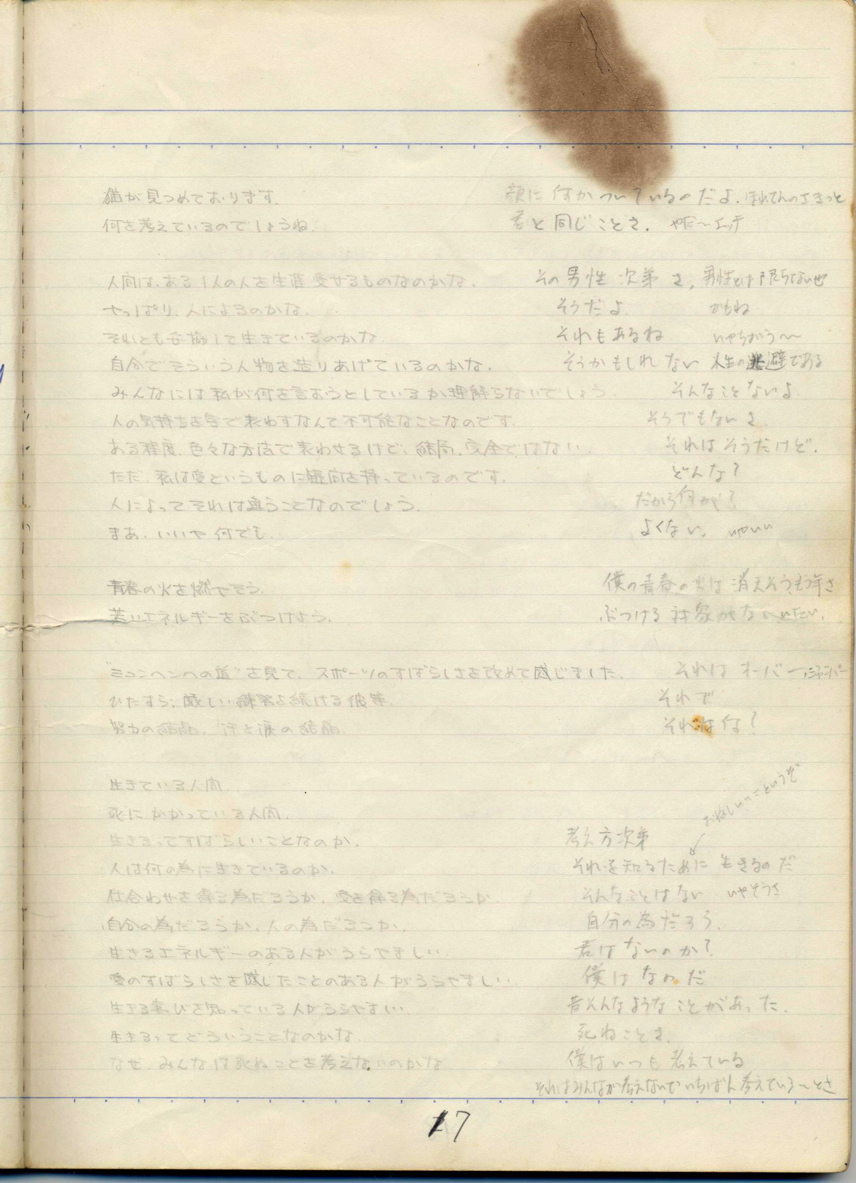 猫が見つめております。 顔に何かついているのだよ。
何を考えているのでしょうね。 君と同じことさ。
人間は、ある1人の人を生涯愛せるものなのかな。 その男性次第さ、男性とは限らないぜ
やっぱり、人によるのかな。 そうだよ かもね
それとも妥協して生きているのかな それもあるね いやちがう〜
自分でそういう人物を造りあげているのかな。 そうかもしれない 人生の逃避である
みんなには私が何を言おうとしているか理解らないでしょう。 そんなことないよ。
人の気持ちを字で表わすなんて不可能なことなのです。 そうでもないさ
ある程度、色々な方法で表わせるけど、結局、完全ではない。 それはそうだけど。
ただ、私は愛というものに疑問を持っているのです。 どんな?
人によってそれは違うことなのでしょう。 だから何が?
まあ、いいや何でも。 よくない。 いやいい
青春の火を燃やそう。 僕の青春の火は消えそう もう年さ
若いエネルギーをぶつけよう。 ぶつける対象がない
"ミュンヘンへの道"を見て、スポーツのすばらしさを改めて感じました。 それはオーバー
ひたすら、厳しい練習を続ける彼等。 それで
努力の結晶、汗と涙の結晶。 それはな?
生きている人間
死にかかっている人間。
生きるってすばらしいことなのか。 考え方次第
人は何の為に生きているのか。 それを知るために生きるのだ
仕合わせを得る為だろうか、愛を得る為だろうか。 そんなことはない いやそうさ
自分の為だろうか、人の為だろうか。 自分の為だろう。
生きるエネルギーのある人がうらやましい。 君はないのか?
愛のすばらしさを感じたことのある人がうらやましい。 僕はなんだ
生きる喜びを知っている人がうらやましい。 昔そんなようなことがあった。
生きるってどういうことなのかな 死ぬことさ
なぜ、みんなは死ぬことを考えないのかな 僕はいつも考えている
それはみんなが考えないで いちばん考えている〜とさ
17